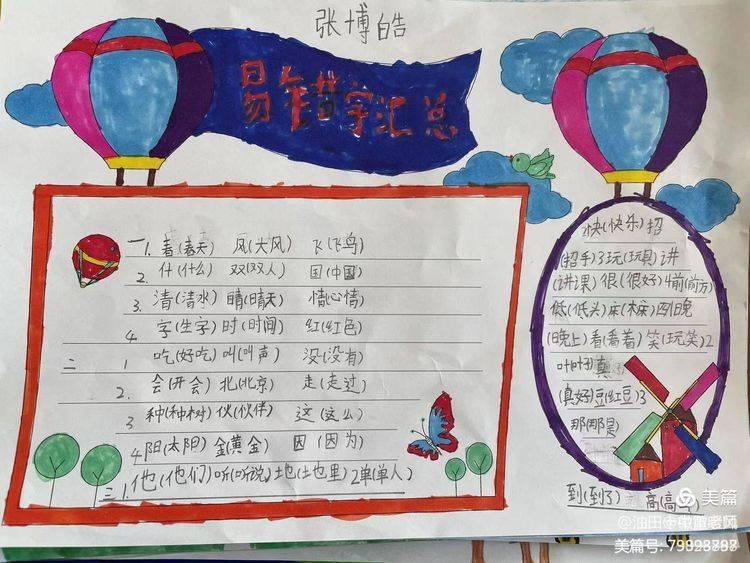 张博皓
易错字汇总
一 1. 春(春天) 风(大风) 飞(飞鸟)
2. 什(什么) 双(双人) 国(中国)
3. 清(清水) 晴(晴天) 情(心情)
4 字(生字) 时(时间) 红(红色)
二 1 吃(好吃) 叫(叫声) 没(没有)
2. 会(开会) 北(北京) 走(走过)
3 种(种树) 伙(伙伴) 这(这么)
4 阳(太阳) 金(黄金) 因(因为)
三 1. 他(他们) 听(听说) 地(土地里) 2单(单人)
快(快乐) 招
(招手) 3玩(玩具) 讲
(讲课) 很(很好) 4前(前方)
低(低头) 床(木床) 四1晚
(晚上) 看(看着) 笑(玩笑) 2
真
(真好) 豆(红豆) 3
那(那是)
到(到了) 高(高
美篇
美篇号: